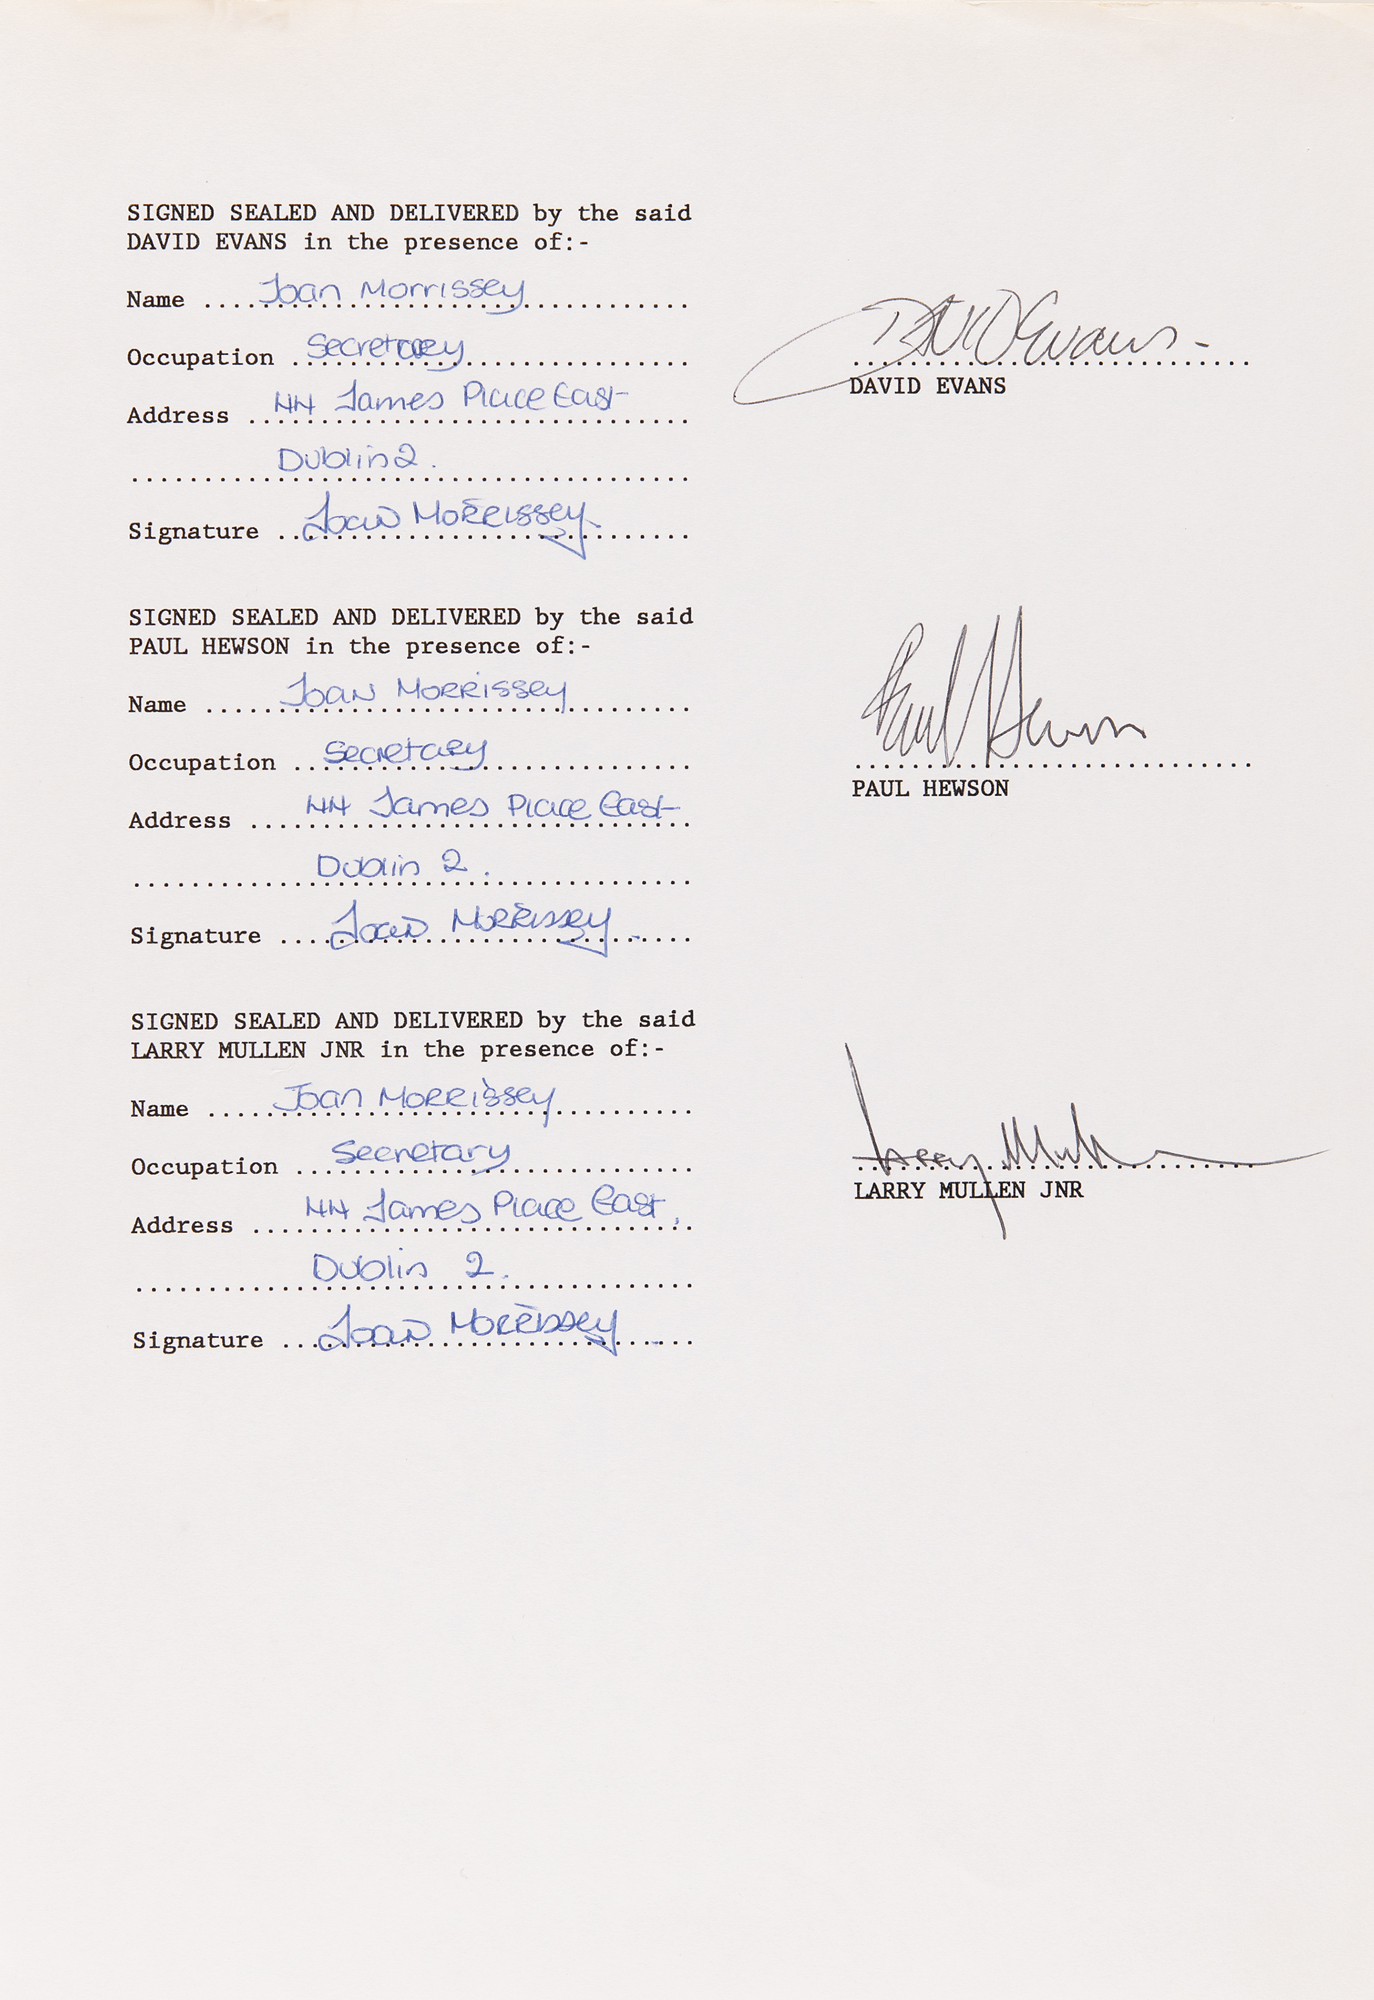 SIGNED SEALED AND DELIVERED by the said
DAVID EVANS in the presence of:-
Name ....Joan Morrissey............
Occupation ..Secretary................
David Evans
Address ..44 James Place East......
DAVID EVANS
Dublin 2.
Signature ..Joan Morrissey.......
SIGNED SEALED AND DELIVERED by the said
PAUL HEWSON in the presence of:-
Name .....Joan Morrissey.........
Paul Hewson
Occupation ..Secretary...............
PAUL HEWSON
Address ...44 James Place East
Dublin 2.
Signature ....Joan Morrissey.....
SIGNED SEALED AND DELIVERED by the said
LARRY MULLEN JNR in the presence of:-
Name ....Joan Morrissey..........
Occupation ...Secretary.............
Larry Mullen
Address ....44 James Place East,
LARRY MULLEN JNR
Dublin 2.
Signature ...Joan Morrissey.....